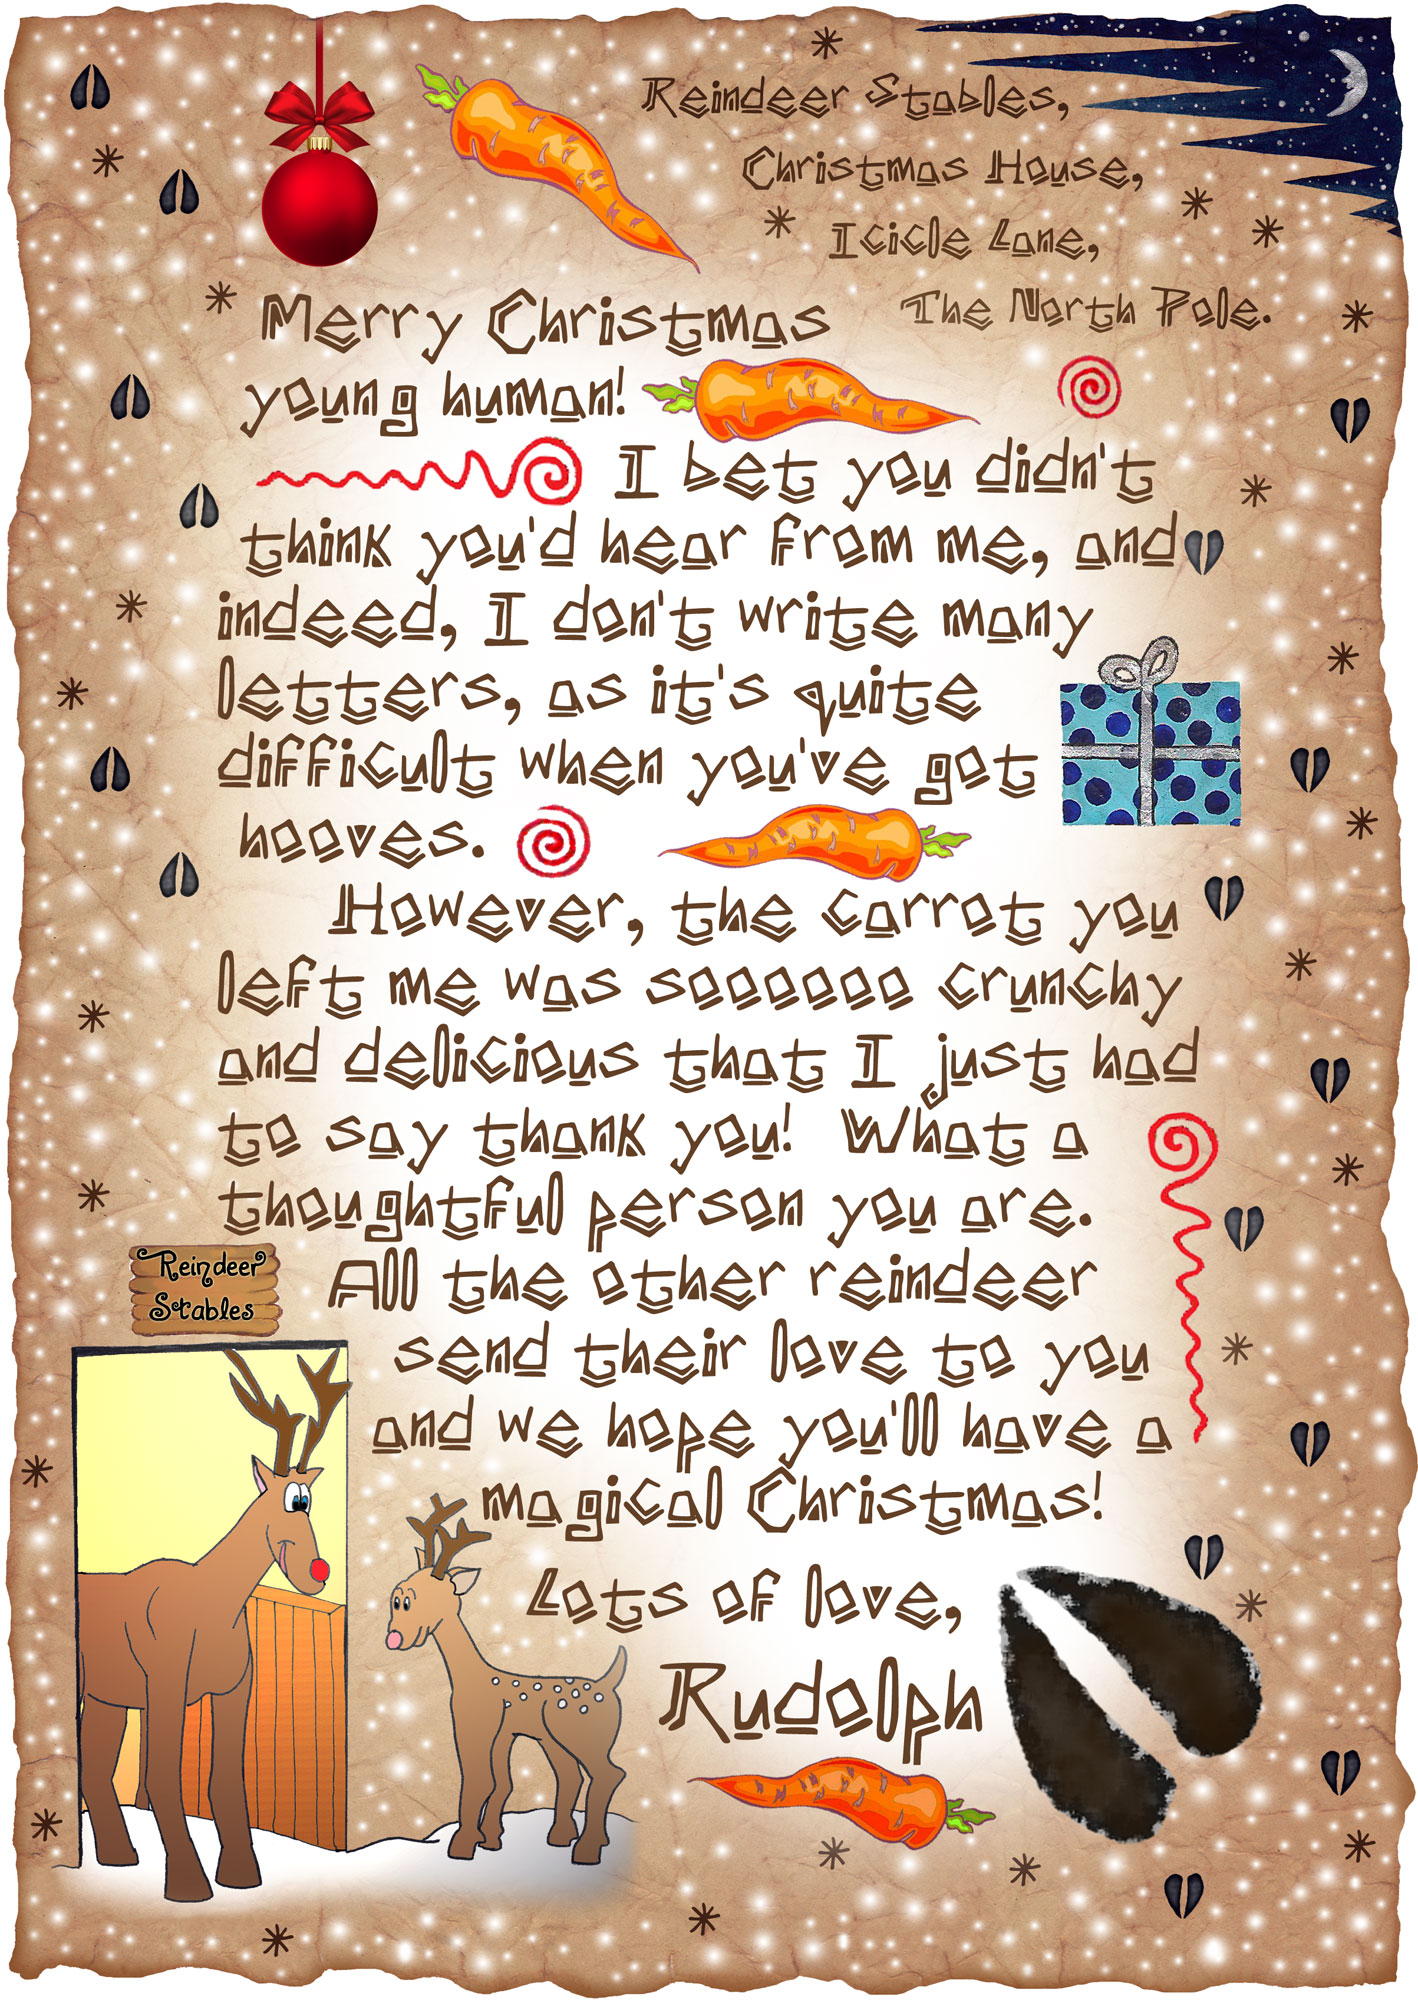 Reindeer Stables,
Christmas House,
Icicle Lane,
The North Pole.
Merry Christmas
young human!
I bet you didn't
think you'd hear from me, and
indeed, I don't write many
letters, as it's quite
difficult when you've got
hooves.
However, the carrot you
left me was sooooooo crunchy
and delicious that I just had
to say thank you! What a
thoughtful person you are.
All the other reindeer
send their love to you
and we hope you'll have a
magical Christmas!
Lots of love,
Rudolph
Reindeer
Stables